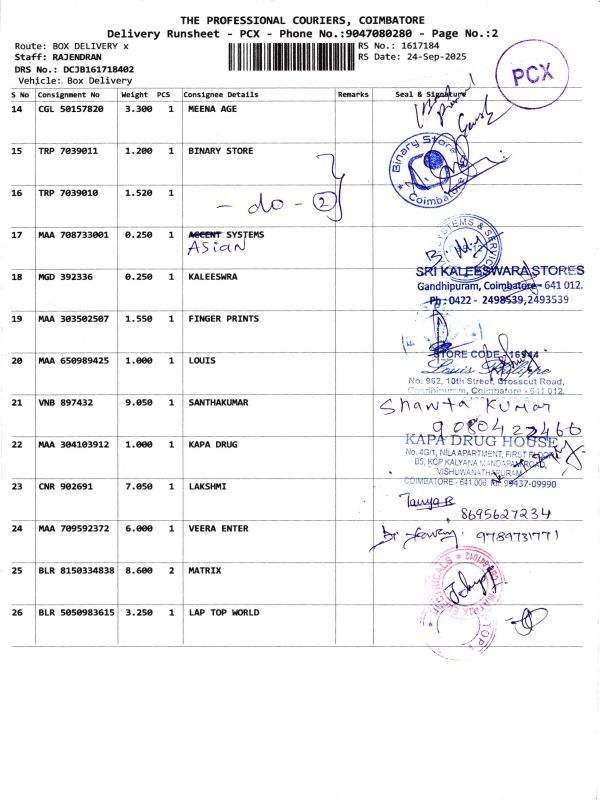 THE PROFESSIONAL COURIERS, COIMBATORE
Delivery Runsheet - PCX - Phone No.:9047080280 - Page No.:2
Route: BOX DELIVERY x
RS No.: 1617184
Staff: RAJENDRAN
RS Date: 24-Sep-2025
DRS No.: DCJB161718402
Vehicle: Box Delivery
PCX
S No Consignment No Weight PCS Consignee Details Remarks Seal & Signature
14 CGL 50157820 3.300 1 MEENA AGE
Ganesh
15 TRP 7039011 1.200 1 BINARY STORE
Binary Store
Coimbatore
16 TRP 7039010 1.520 1
- do - 2
17 MAA 708733001 0.250 1 ACCENT SYSTEMS
ASiAN
SYSTEMS & SERVICE
18 MGD 392336 0.250 1 KALEESWRA
SRI KALEESWARA STORES
Gandhipuram, Coimbatore - 641 012.
Ph: 0422 - 2498539, 2493539
19 MAA 303502507 1.550 1 FINGER PRINTS
20 MAA 650989425 1.000 1 LOUIS
STORE CODE - 16944
Louis Philippe
No: 962, 10th Street, Crosscut Road,
Gandhipuram, Coimbatore - 641 012.
21 VNB 897432 9.050 1 SANTHAKUMAR
Shanta Kumar
9080422460
22 MAA 304103912 1.000 1 KAPA DRUG
KAPA DRUG HOUSE
No. 4G/1, NILA APARTMENT, FIRST FLOOR
B5, KCP KALYANA MANDAPAM ROAD,
VISHUWANATHAPURAM,
COIMBATORE - 641 006. 99437-09990
23 CNR 902691 7.050 1 LAKSHMI
Tanya B
8695627234
24 MAA 709592372 6.000 1 VEERA ENTER
9789731771
25 BLR 8150334838 8.600 2 MATRIX
26 BLR 5050983615 3.250 1 LAP TOP WORLD